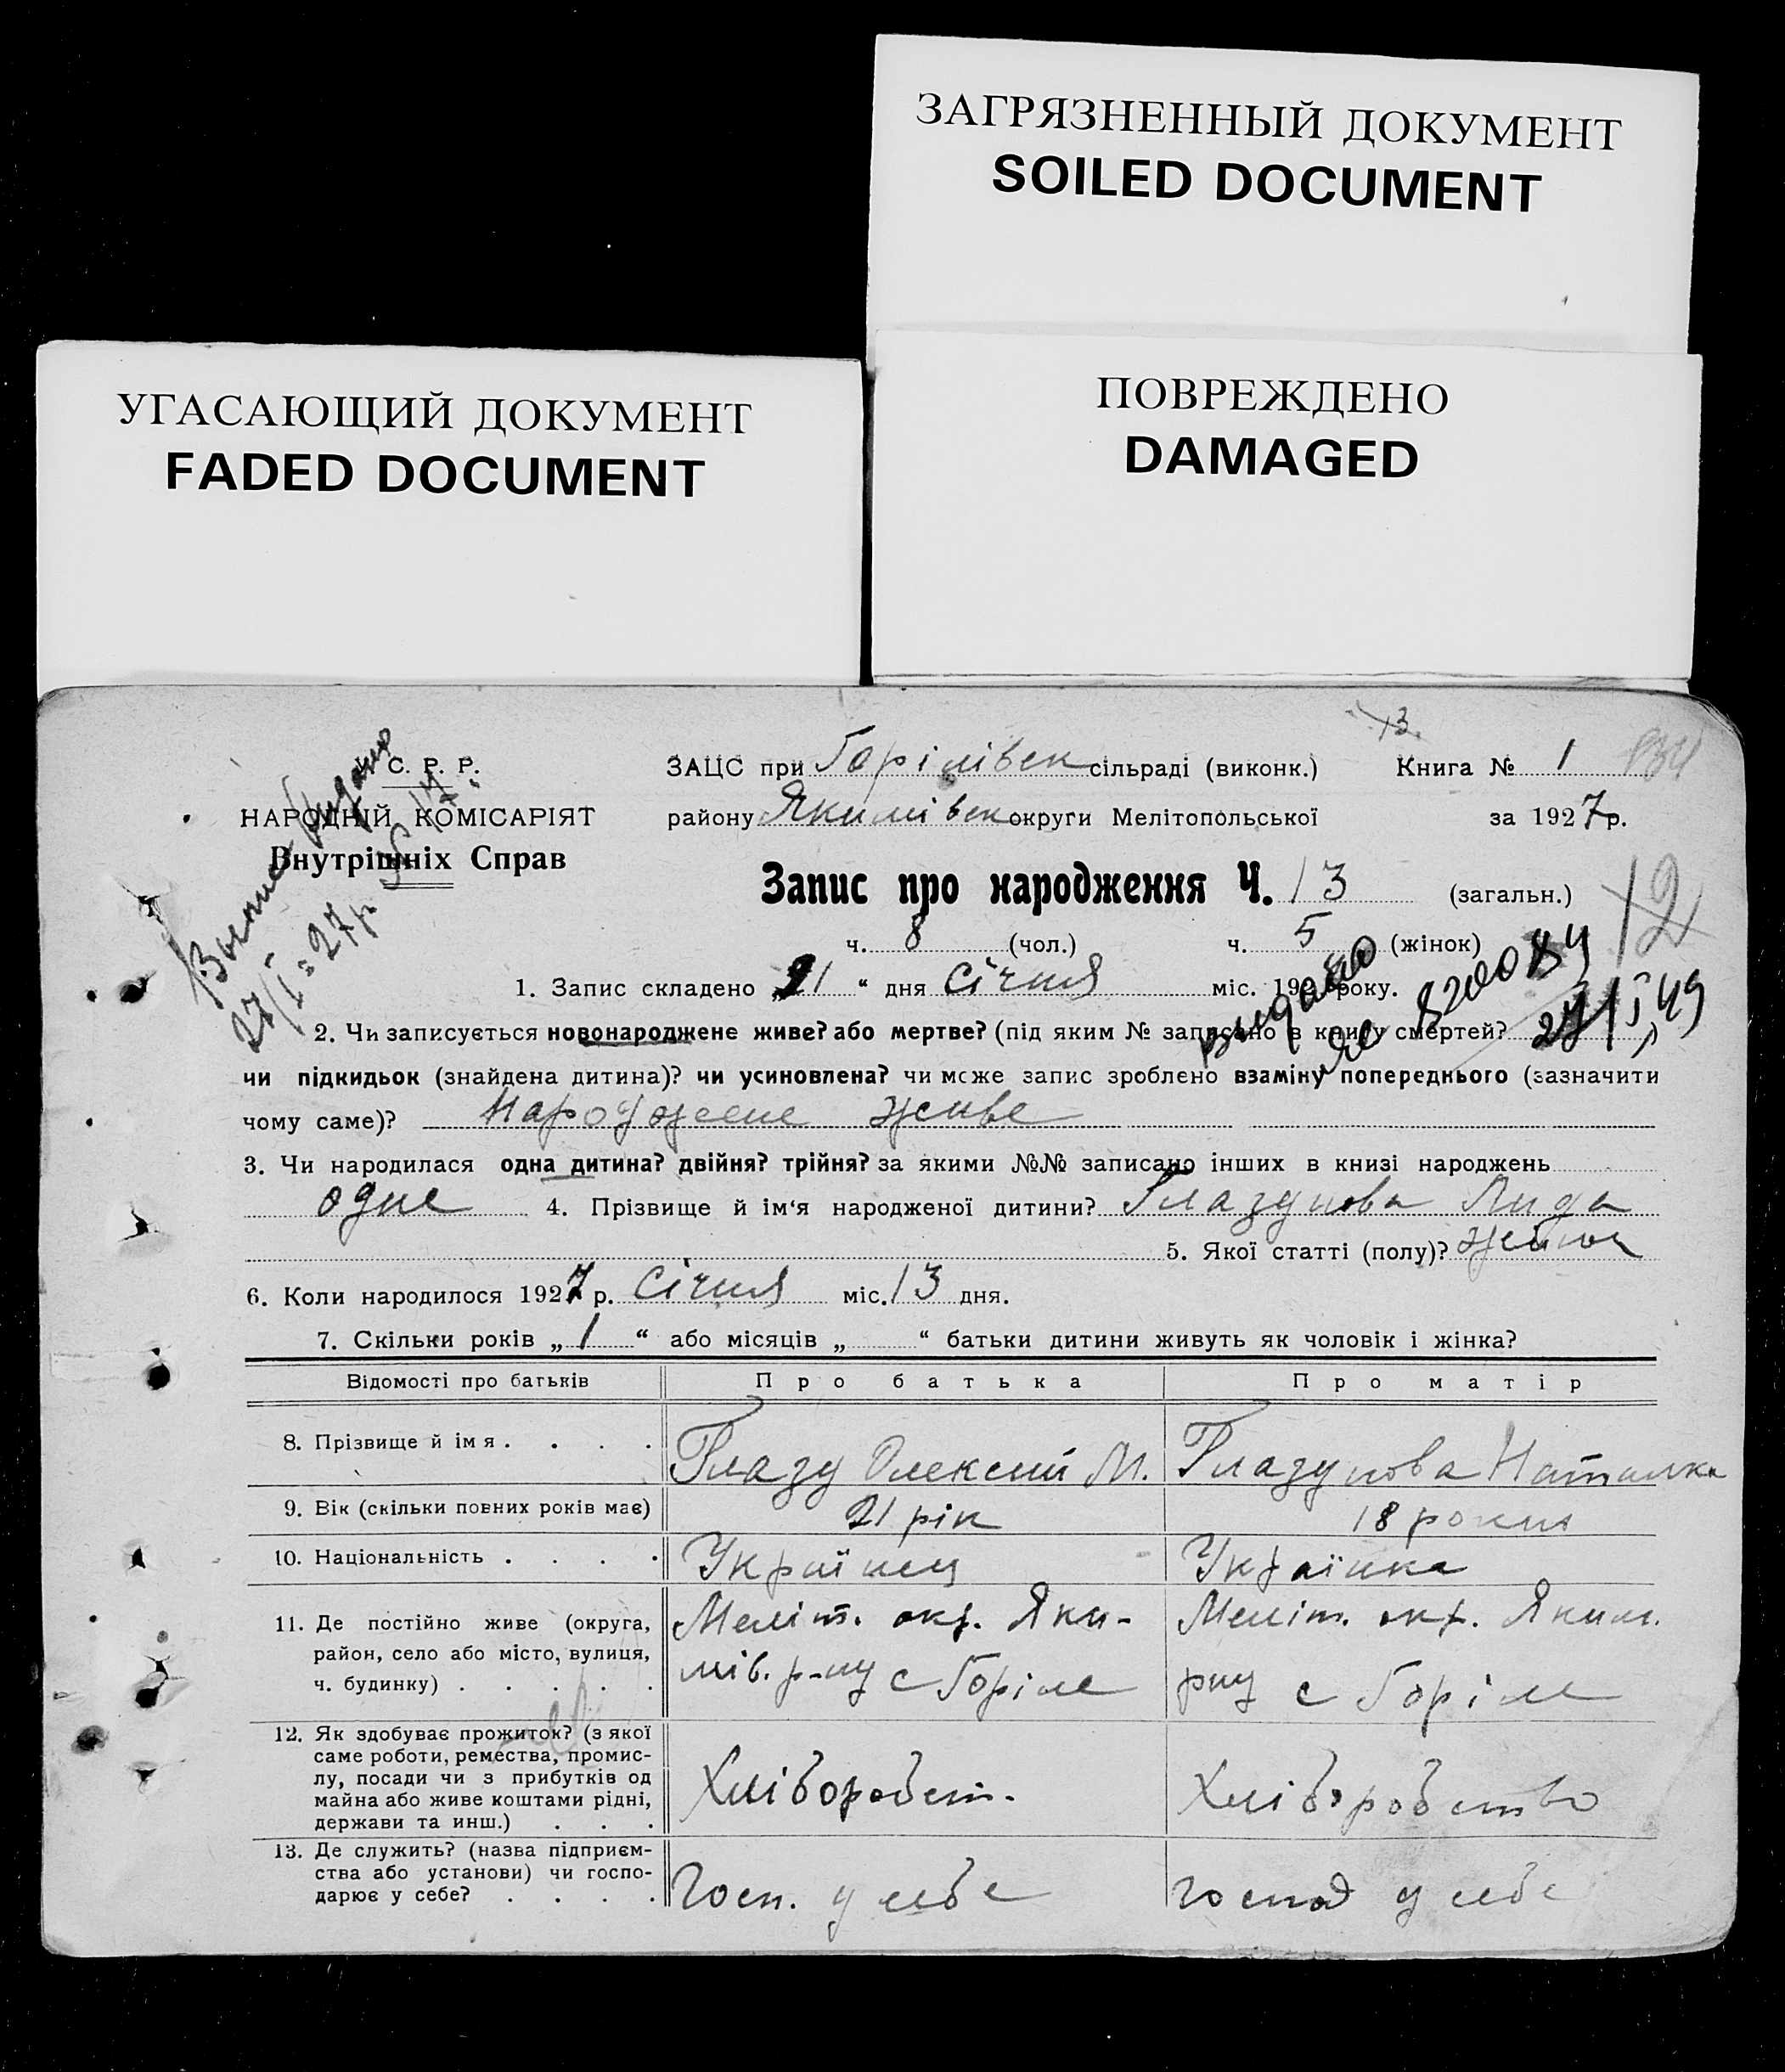 ЗАГРЯЗНЕННЫЙ ДОКУМЕНТ
SOILED DOCUMENT
УГАСАЮЩИЙ ДОКУМЕНТ
FADED DOCUMENT
ПОВРЕЖДЕНО
DAMAGED
13.
С. Р. Р.
НАРОДНІЙ КОМІСАРІЯТ
Внутрішніх Справ
27/I-27р
ЗАЦС при Горілівськ сільраді (виконк.) Книга № 1
району Якимівськ округи Мелітопольської за 1927р.
Запис про народження Ч. 13 (загальн.)
12
ч. 8 (чол.) ч. 5 (жінок)
1. Запис складено „21“ дня Січня міс. 192 року.
видано
2. Чи записується новонароджене живе? або мертве? (під яким № записано в книгу смертей?
чи підкидьок (знайдена дитина)? чи усиновлена? чи може запис зроблено взаміну попереднього (зазначити
чому саме)? Народжене живе
3. Чи народилася одна дитина? двійня? трійня? за якими №№ записано інших в книзі народжень
одне 4. Прізвище й ім‘я народженої дитини? Глазунова Лида
5. Якої статті (полу)? жіноч
6. Коли народилося 1927 р. Січня міс. 13 дня.
7. Скільки років „1“ або місяців „ “ батьки дитини живуть як чоловік і жінка?
Відомості про батьків Про батька Про матір
8. Прізвище й імя . . . . Глазу Олексій М. Глазунова Наталка
9. Вік (скільки повних років має) 21 рік 18 роки
10. Національність . . . . Українец Українка
11. Де постійно живе (округа, Меліт. окр. Яки- Меліт. окр. Яким.
район, село або місто, вулиця, мів. р-ну с Горіле рну с Горіле
ч. будинку) . . . . .
12. Як здобуває прожиток? (з якої
саме роботи, ремества, промис-
лу, посади чи з прибутків од Хлібороbст. Хліборобство
майна або живе коштами рідні,
держави та инш.) . . .
13. Де служить? (назва підприєм-
ства або установи) чи госпо- Госп. у себе господ у себе
дарює у себе? . . . .